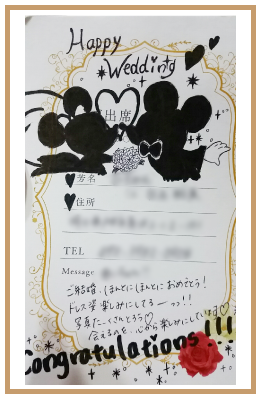 Happy
Wedding
出席
芳名
住所
TEL
Message
ご結婚、ほんとにほんとにおめでとう!
ドレス姿楽しみにしてるーっっ!!
写真たーくさんとろう♡
会えるのを、心から楽しみにしています♡
Congratulations!!!